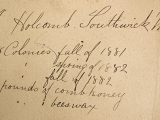 Holcomb, Southwick
Colonies, fall of 1881
spring of 1882
fall of 1882
pounds of comb honey
" beeswax